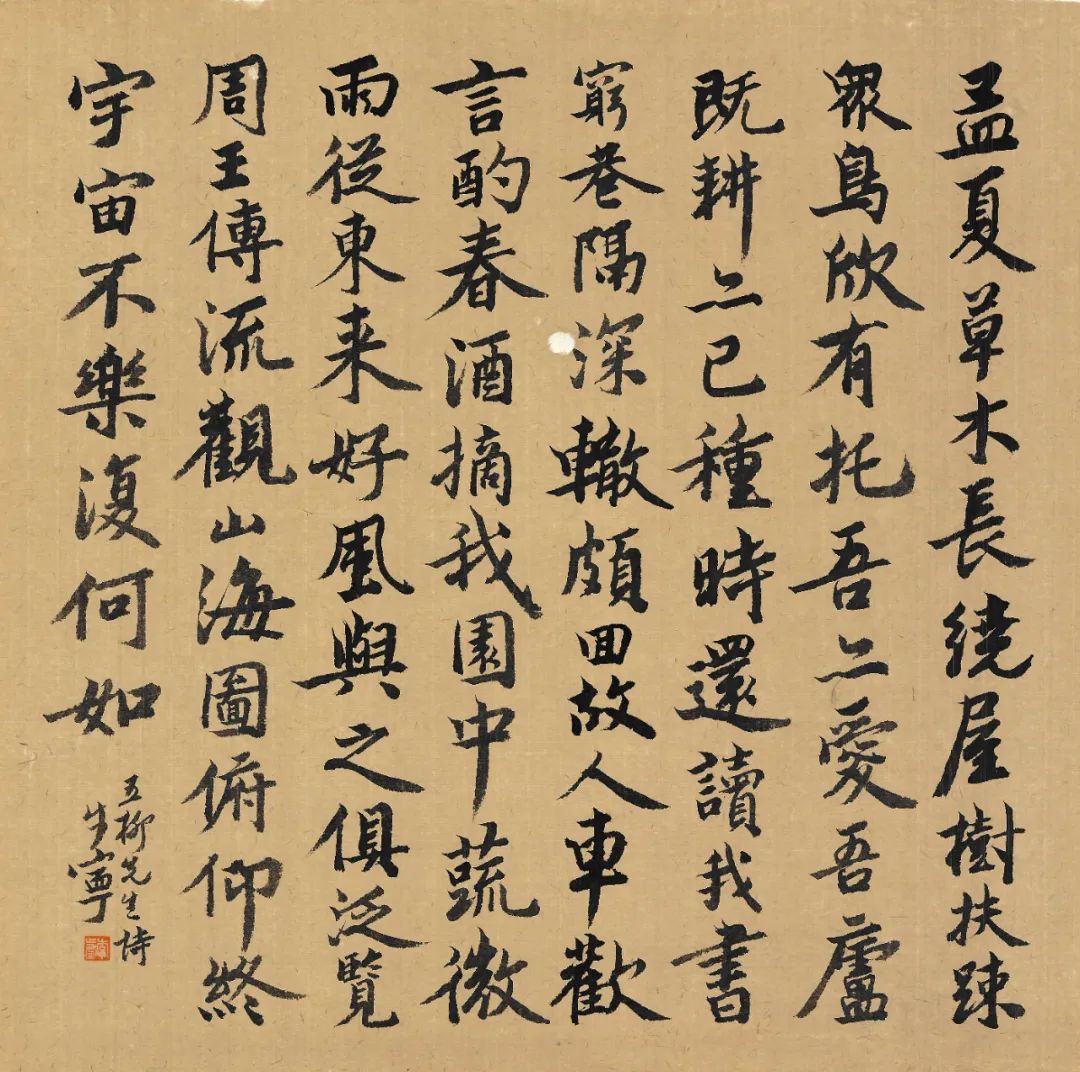 孟夏草木長繞屋樹扶踈
眾鳥欣有托吾亦愛吾廬
既耕亦已種時還讀我書
窮巷隔深轍頗回故人車歡
言酌春酒摘我園中蔬微
雨從東来好風與之俱泛覽
周王傳流觀山海圖俯仰終
宇宙不樂復何如
五柳先生詩
生寧